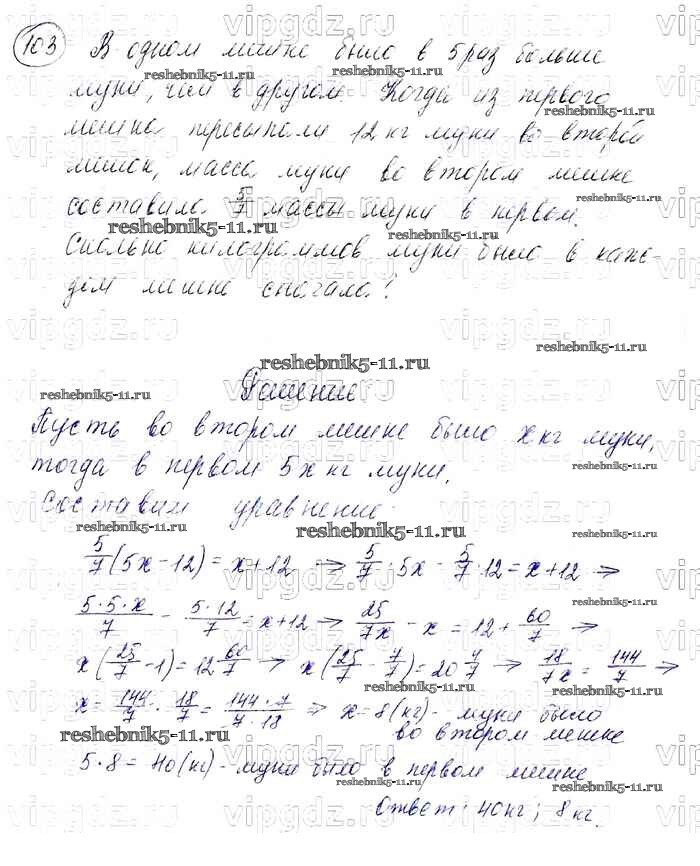 103 В одном мешке было в 5 раз больше
муки, чем в другом. Когда из первого
мешка пересыпали 12 кг муки во второй
мешок, масса муки во втором мешке
составила 5/7 массы муки в первом.
Сколько килограммов муки было в каж-
дом мешке сначала?
Решение
Пусть во втором мешке было x кг муки,
тогда в первом 5x кг муки.
Составим уравнение:
5/7(5x-12)=x+12 ⇒ 5/7·5x - 5/7·12=x+12 ⇒
5·5·x/7 - 5·12/7=x+12 ⇒ 25/7x - x = 12+60/7 ⇒
x(25/7-1)=12 60/7 ⇒ x(25/7-7/7)=20 4/7 ⇒ 18/7x=144/7 ⇒
x=144/7:18/7=144·7/7·18 ⇒ x=8(кг)- муки было
во втором мешке
5·8=40(кг)-муки было в первом мешке
Ответ: 40кг; 8кг.
vipgdz.ru
reshebnik5-11.ru